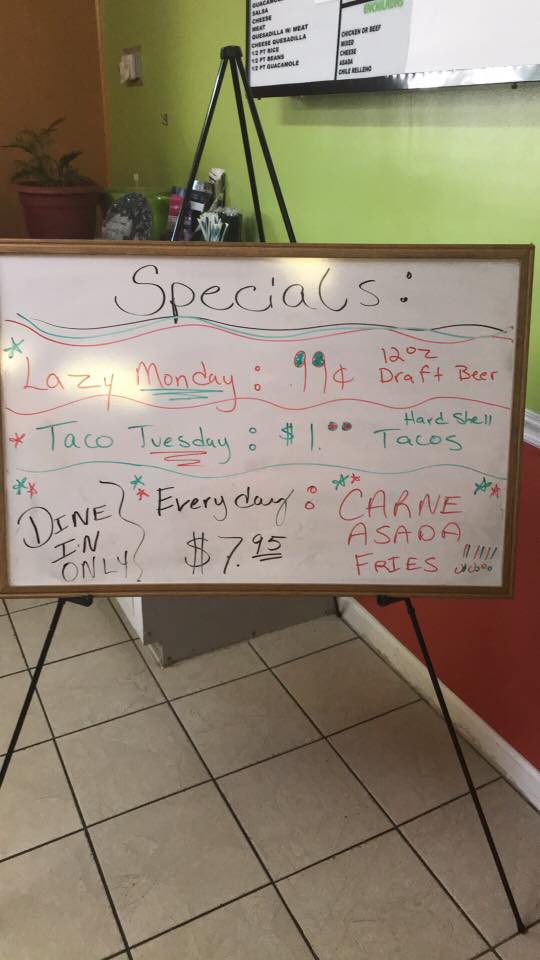 GUACAMOLE
SALSA
CHEESE
MEAT
QUESADILLA W/ MEAT
CHEESE QUESADILLA
1/2 PT RICE
1/2 PT BEANS
1/2 PT GUACAMOLE
ENCHILADAS
CHICKEN OR BEEF
MIXED
CHEESE
ASADA
CHILE RELLENO
Specials:
* Lazy Monday : .99¢ 12oz Draft Beer
* Taco Tuesday : $1.00 Hard Shell Tacos
DINE IN ONLY
Everyday :
$7.95
CARNE
ASADA
FRIES !!!!!!